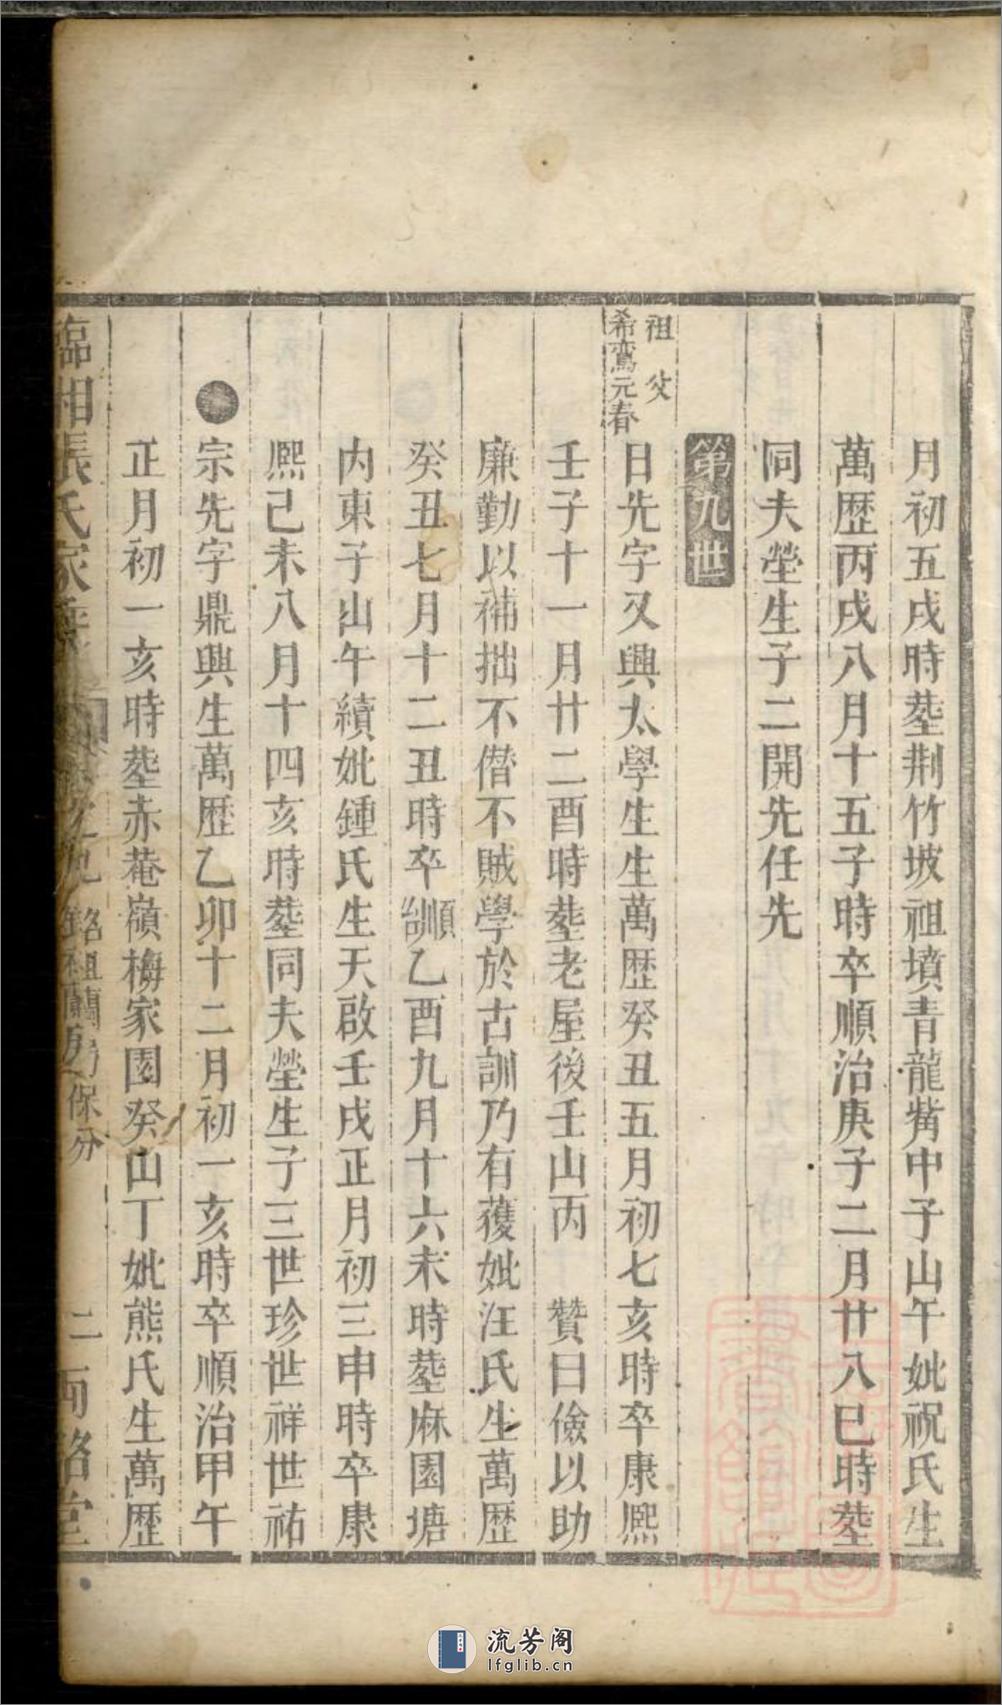 月初五戌時塟荆竹坡祖墳青龍觜中子山午妣祝氏生
萬歴丙戌八月十五子時卒順治庚子二月廿八巳時塟
同夫塋生子二開先任先
第九世
祖父
希鸞元春
日先字又興太學生生萬歴癸丑五月初七亥時卒康熙
壬子十一月廿二酉時塟老屋後壬山丙 贊曰儉以助
廉勤以補拙不僭不賊學於古訓乃有獲妣汪氏生萬歴
癸丑七月十二丑時卒順乙酉九月十六未時塟麻園塘
内東子山午續妣鍾氏生天啟壬戌正月初三申時卒康
熙己未八月十四亥時塟同夫塋生子三世珍世祥世祐
宗先字鼎興生萬歴乙卯十二月初一亥時卒順治甲午
正月初一亥時塟赤菴嶺梅家園癸山丁妣熊氏生萬歴
臨湘張氏家乘
卷之九 銘祖蘭房保分
二 両銘堂
流芳阁
lfglib.cn